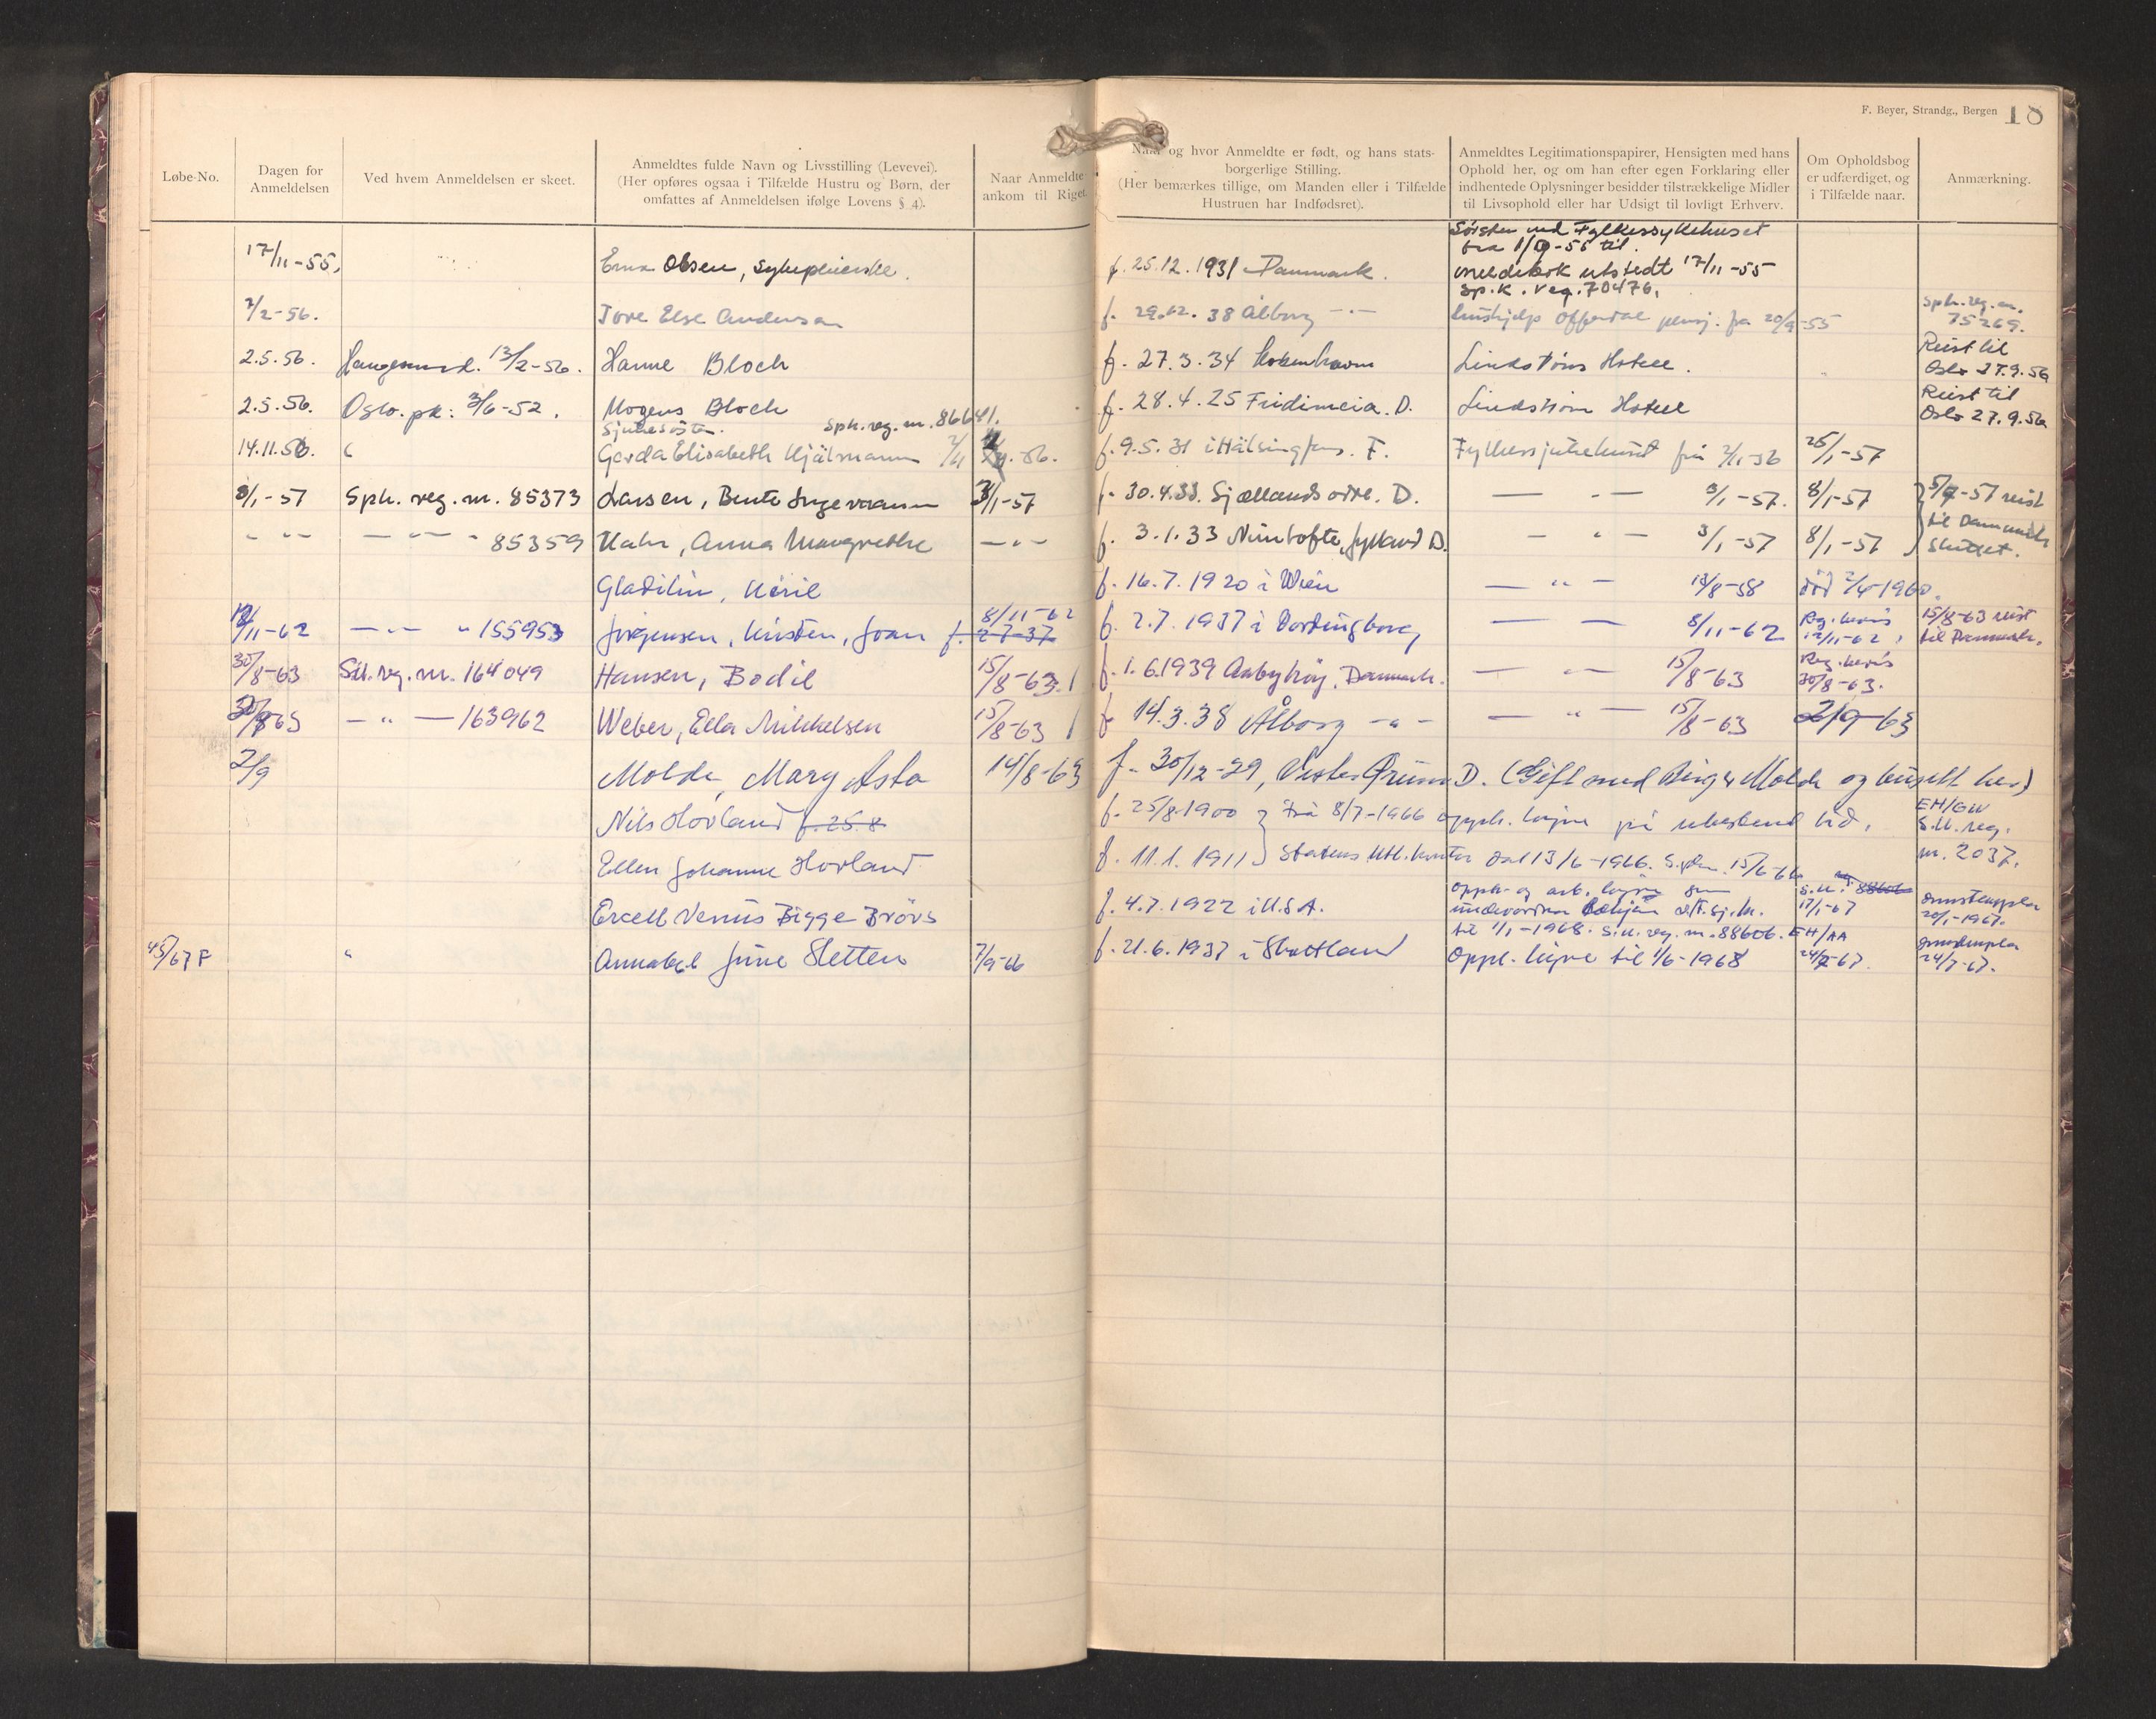 F. Beyer, Strandg., Bergen 18
Løbe-No.
Dagen for
Anmeldelsen
Ved hvem Anmeldelsen er skeet.
Anmeldtes fulde Navn og Livsstilling (Levevei).
(Her opføres ogsaa i Tilfælde Hustru og Børn, der
omfattes af Anmeldelsen ifølge Lovens § 4).
Naar Anmeldte
ankom til Riget
Naar og hvor Anmeldte er født, og hans stats-
borgerlige Stilling.
(Her bemærkes tillige, om Manden eller i Tilfælde
Hustruen har Indfødsret).
Anmeldtes Legitimationspapirer, Hensigten med hans
Ophold her, og om han efter egen Forklaring eller
indhentede Oplysninger besidder tilstrækkelige Midler
til Livsophold eller har Udsigt til lovligt Erhverv.
Om Opholdsbog
er udfærdiget, og
i Tilfælde naar.
Anmærkning.
17/11-55. Olsen, f. 25.12.1931 Danmark.
ved Fylkessykehuset
fra 1/9-55 til.
meldebok utstedt 17/11-55
Sp.k. reg. 70476.
7/2-56. Tove Else Andersen f. 29.12.38 Ålborg -"- hushjelp fra 20/9-55
Sph.reg.nr.
75269.
2.5.56. Haugesund. 13/2-56. Hanne Bloch f. 27.3.34 København Lindstrøms Hotell.
Reist til
Oslo 27.9.56
2.5.56. Oslo.pk: 3/6-52. Mogens Bloch f. 28.4.25 D. Lindstrøm Hotell
Reist til
Oslo 27.9.56
Sph.reg.nr. 86641.
14.11.56. Gerda Elisabeth Hjälmann f. 9.5.31 i Hälsingfors. F. Fylkessjukehuset frå 2/11-56 25/1-57
8/1-57 Sph. reg. nr. 85373 Larsen, Bente 3/1-57 f. 30.4.33. Sjællands odde. D. — " — 3/1-57. 8/1-57 5/7-57 reist
til Danmark
sluttet.
- " - — " — " 85359 Hahn, Anna Margrethe — " — f. 3.1.33 Nimtofte, Jylland D. — " — 3/1-57 8/1-57
Gladilin, Kiril f. 16.7.1920 i Wien — " — 13/8-58 død 2/4-1960.
12/11-62 — " — " 155953 Jørgensen, Kirsten, Joan f. 2-7-37 8/11-62 f. 2.7.1937 i Vordingborg — — 8/11-62
Reg. bevis
12/11-62.
15/8-63 reist
til Danmark.
30/8-63 S.u.reg.nr. 164049 Hansen, Bodil 15/8-63. f. 1.6.1939 Aabyhøj, Danmark. — " — 15/8-63
Reg. bevis
30/8-63.
30/8-63 — " — 163962 Weber, Ella Mikkelsen 15/8-63 f. 14.3.38 Ålborg -"- — " — 15/8-63 2/9-63
2/9 Molde, Mary Asta 14/8-63 f. 30/12-29, D. (Gift med Birger Molde og busett her)
Nils Hovland f. 25.8 f. 25/8-1900 Frå 8/7-1966 opph. løyve på ubestemt tid.
EH/GW
S.U. reg.
nr. 2037.
Ellen Johanne Hovland f. 11.1.1911 Statens utl.kontor dat 13/6-1966. 15/6-66
Excell Venus Bigge Brövs f. 4.7.1922 i U.S.A.
opph- og arb. løyve
til 1/1-1968. S.u. reg. nr. 88606. EH/AA
17/1-67
20/1-1967.
45/67 F " Annabel June Sletten 7/9-66 f. 21.6.1937 i Skottland Opph. løyve til 1/6-1968 24/7-67
24/7-67.